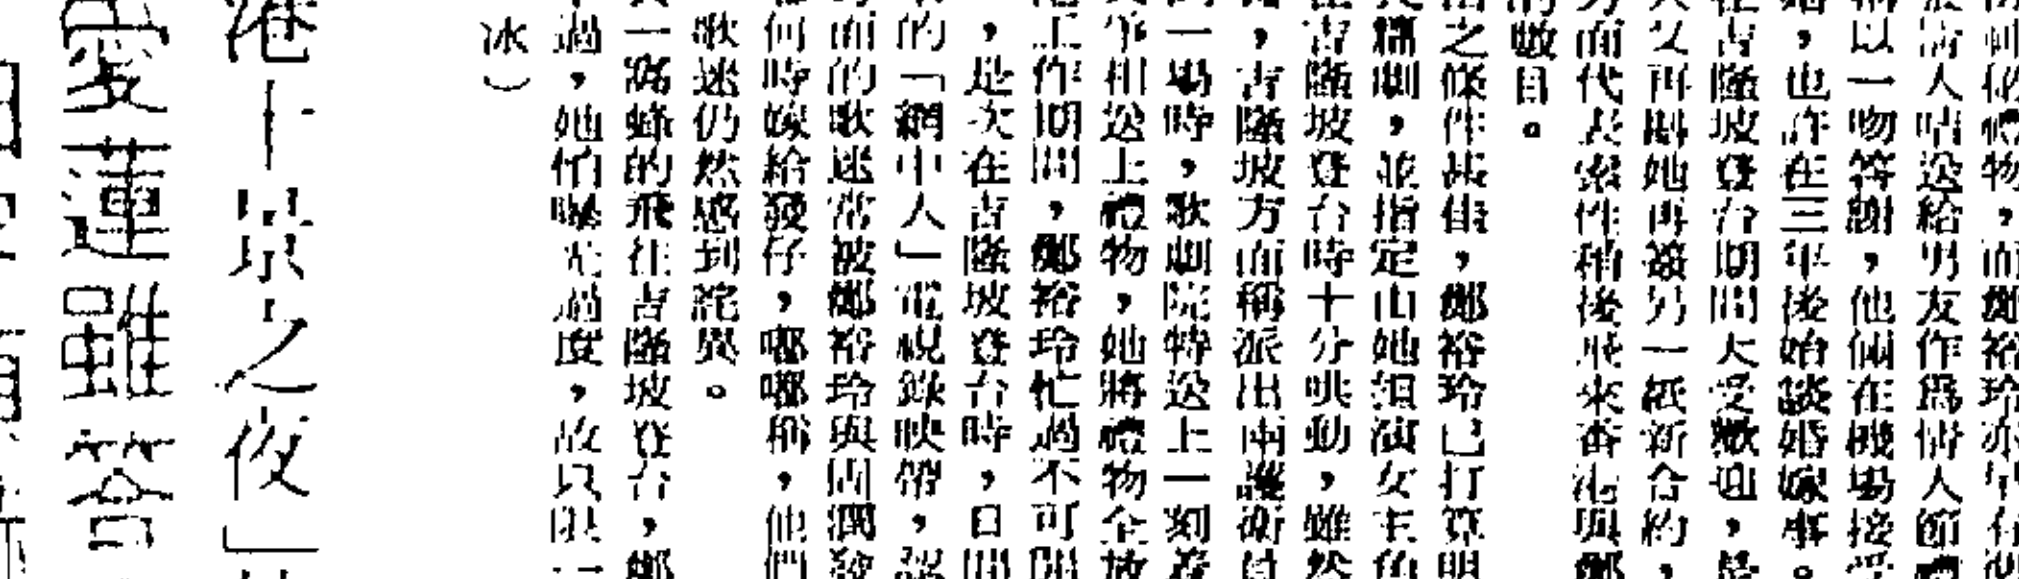 物，而鄭裕玲亦早有
情人情送給男友作爲情人節禮
以一吻答謝，他倆在機場接受
，也許在三年後始談婚嫁事。
吉隆坡登台期間大受歡迎，是
又再斟她再簽另一紙新合約，
方面代表索性稍後飛來香港與鄭
的數目。
之條件甚佳，鄭裕玲已打算明
劇，並指定由她担演女主角
吉隆坡登台時十分哄動，雖然
，吉隆坡方面稱派出兩護衛員
一場時，歌劇院特送上一刻
爭相送上禮物，她將禮物全放
工作期間，鄭裕玲忙過不可開
，是次在吉隆坡登台時，日間
的「網中人」電視錄映帶，認
面的歌迷常被鄭裕玲與周潤發
何時嫁給發仔，嘟嘟稱，他們
歌迷仍然感到詫異。
一窩蜂的飛往吉隆坡登台，鄭
過，她怕曝光過度，故只限一
冰）
港十景之夜」
愛蓮雖答